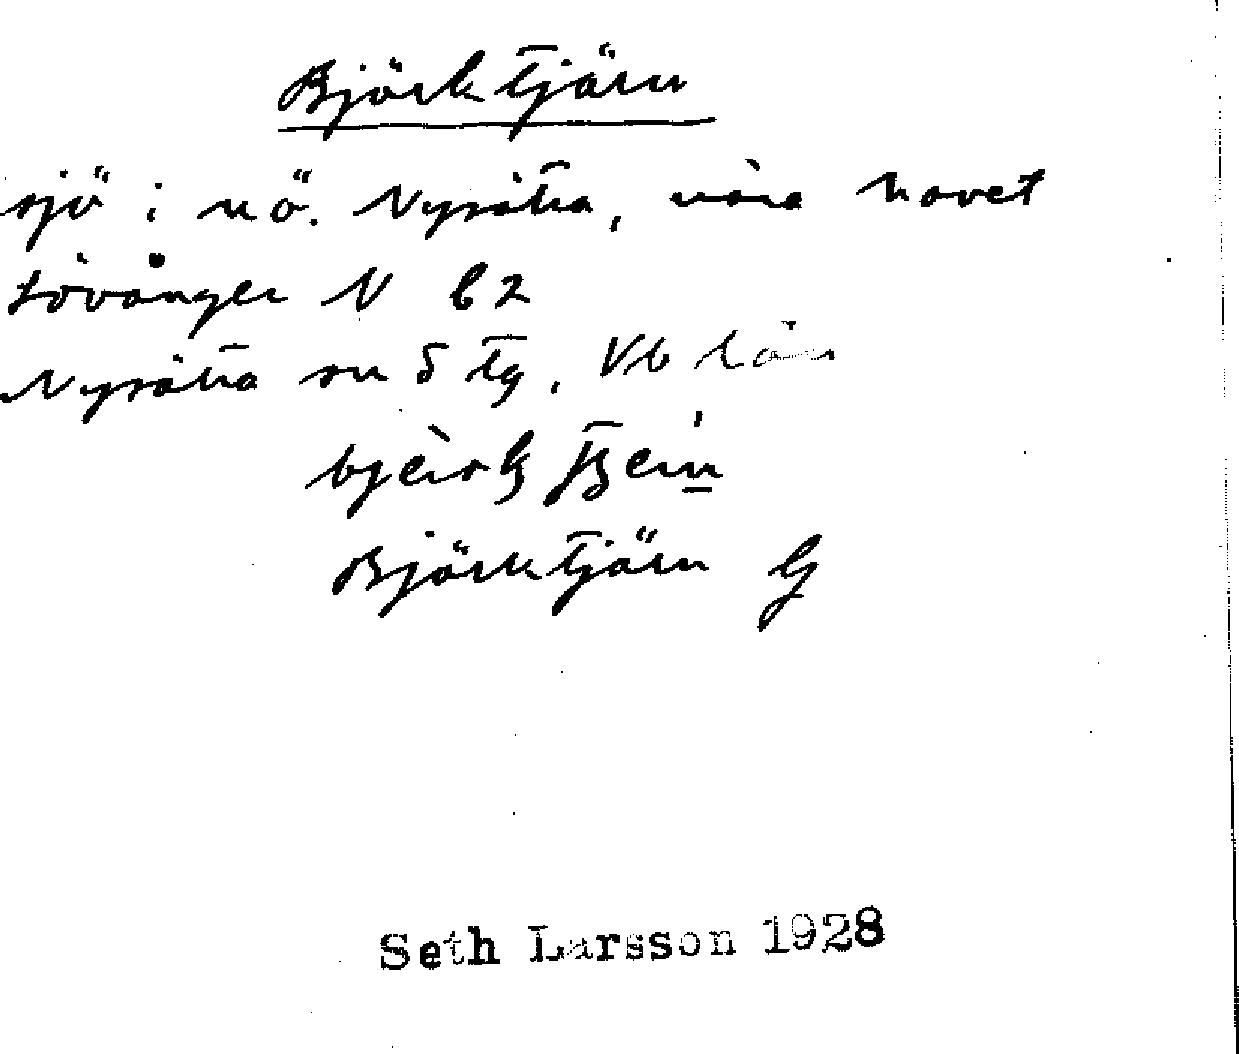 Björktjärn
sjö i nö. Nysätra, nära havet
Lövånger N b2
Nysätra sn S tg, Vb län
Björktjärn G
Seth Larsson 1928